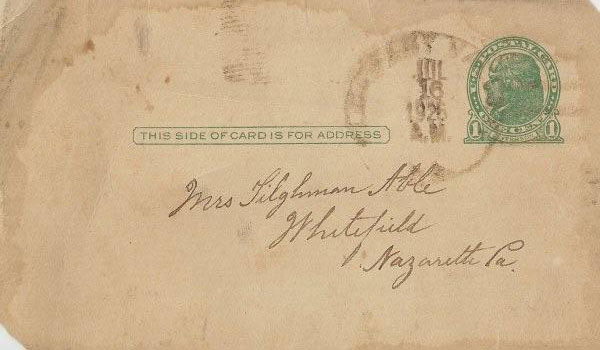 JUL
16
A.M.
U.S. POSTAL CARD
ONE CENT
1 1
THIS SIDE OF CARD IS FOR ADDRESS
Mrs Tilghman Able
Whitefield
Nazareth Pa.